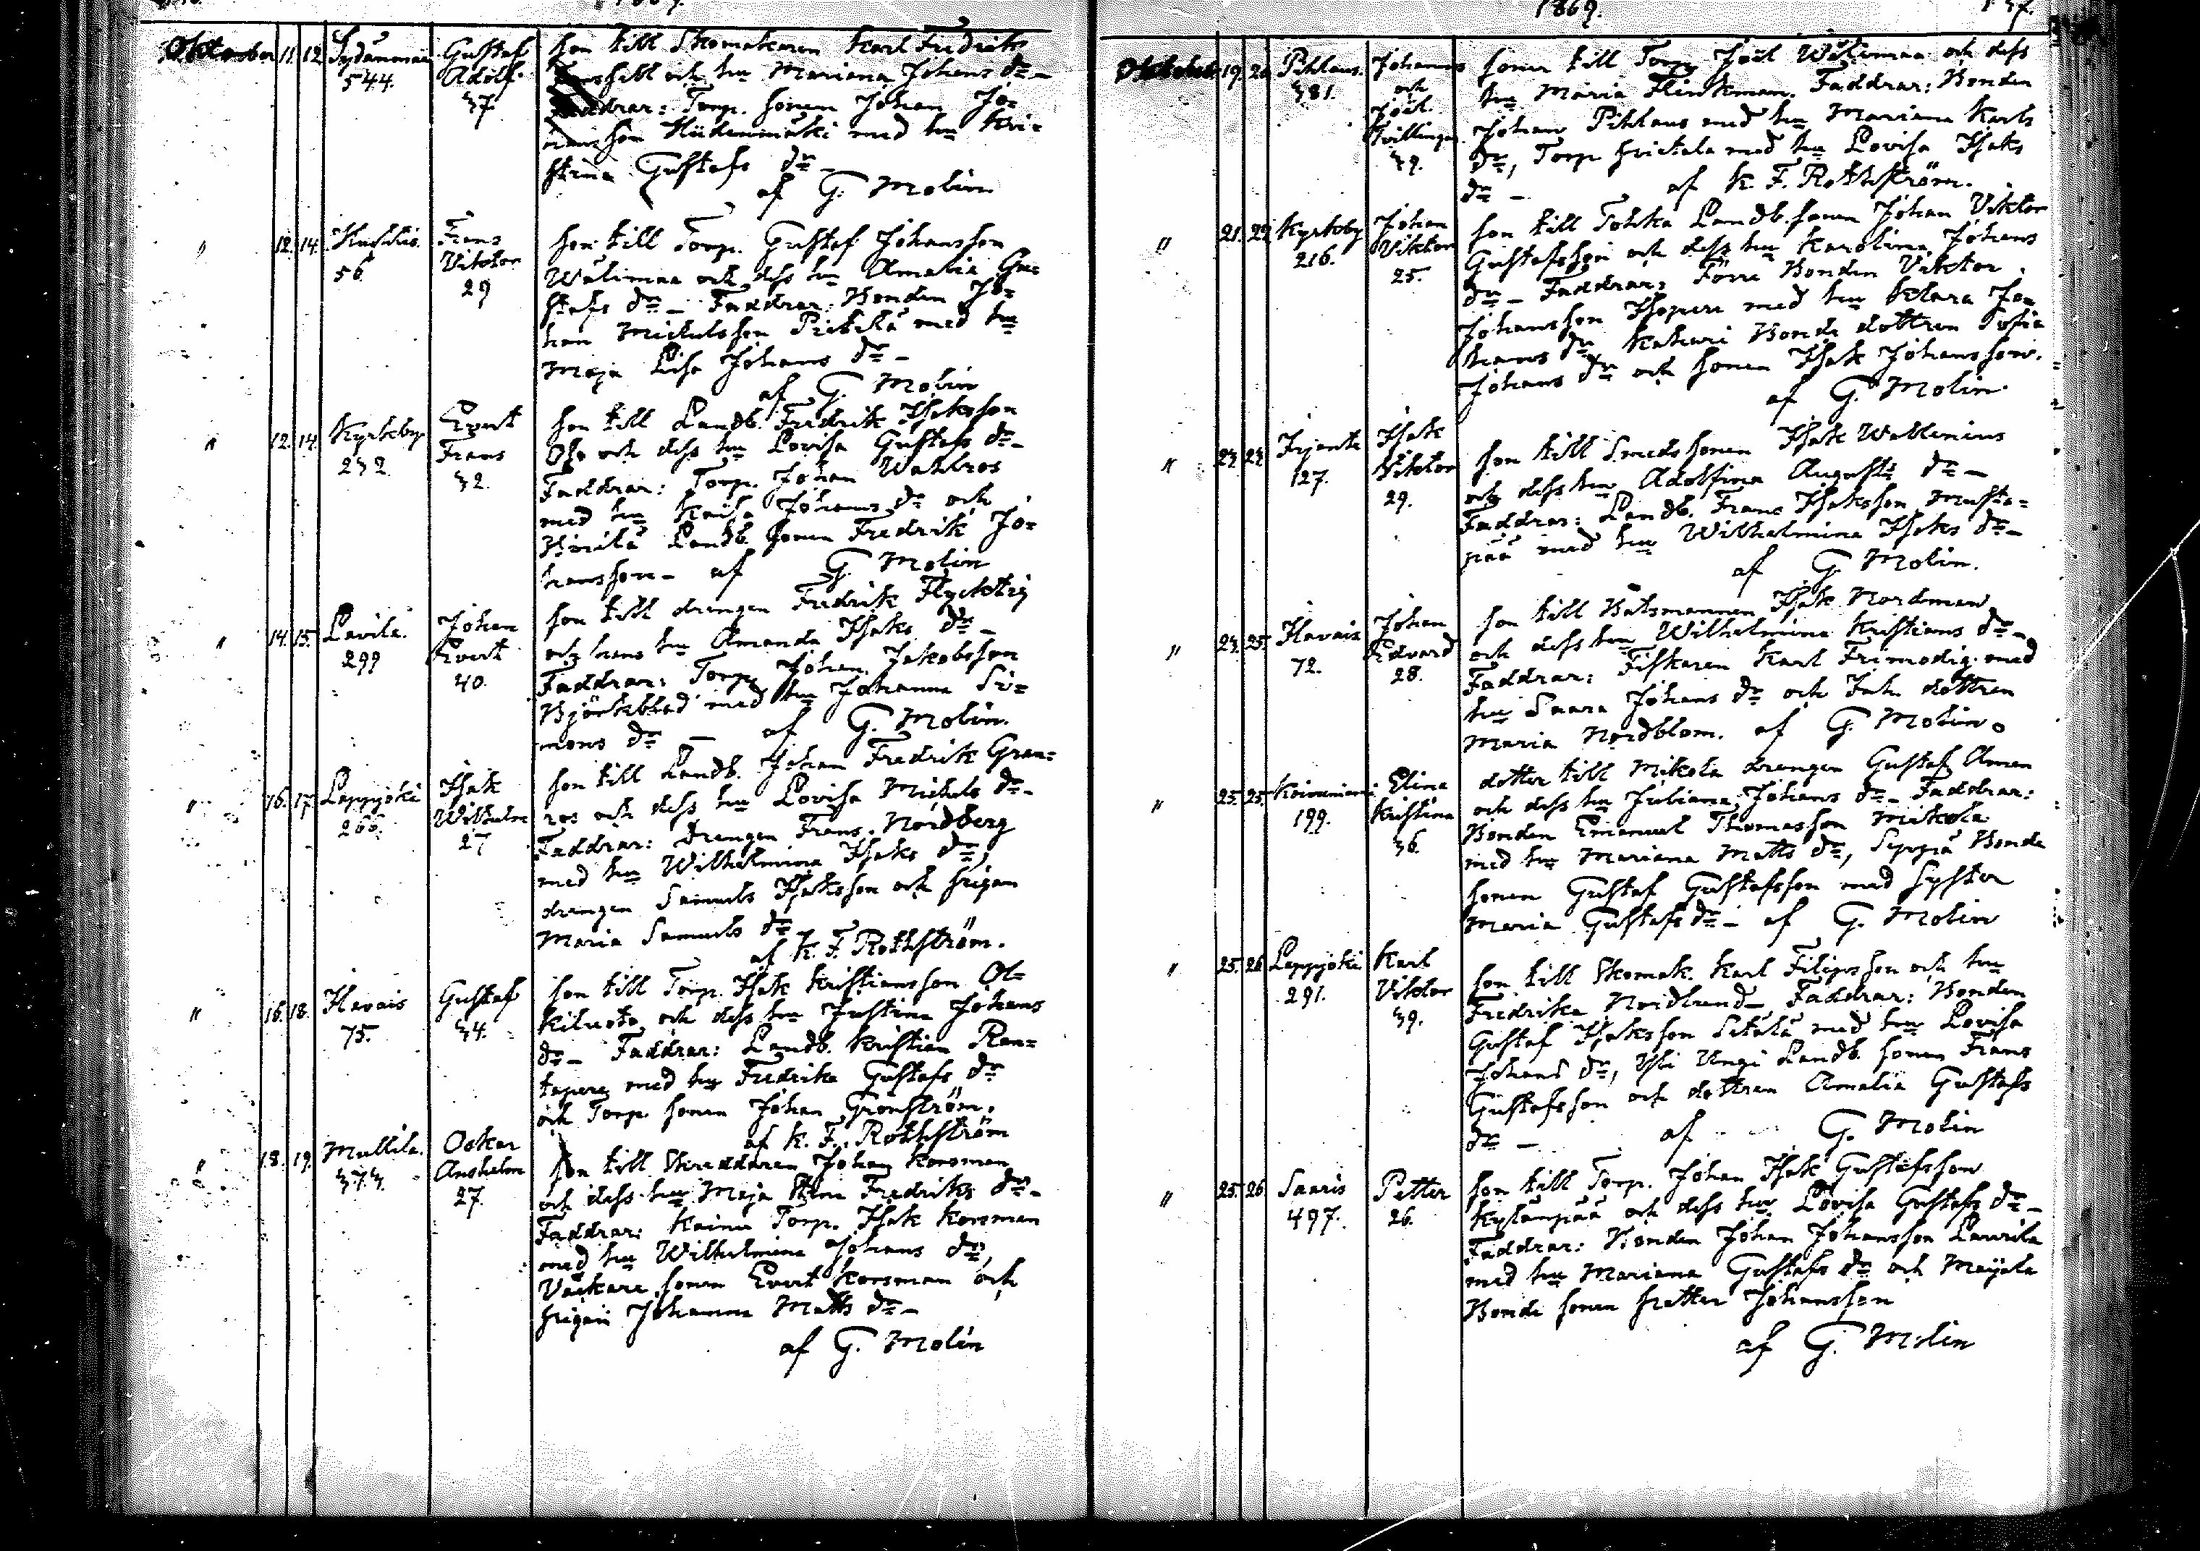 1869.
Oktober 11. 12. Sydänmaa 544. Gustaf Adolf 37.
son till Skomakaren Karl Fredrik
och hu Mariana Johans dr –
Faddrar: Torp. sonen Johan Jo-
hansson Hiidenmäki med hu Kri-
stina Gustafs dr –
af G. Molin
" 12. 14. 56 Frans Viktor 29
son till Torp. Gustaf Johansson
Wälimaa och dess hu Amalia Gu-
stafs dr – Faddrar: Bonden Jo-
han Michelsson Pietilä med hu
Maja Lisa Johans dr –
af G. Molin
" 12. 14. Kyrkby 232 Evert Frans 32.
son till Landb. Fredrik Isaksson
och dess hu Lovisa Gustafs dr –
Faddrar: Torp. Johan Wahlros
med hu Kaisa Johans dr och
Landb. sonen Fredrik Jo-
hansson – af G. Molin
" 14. 15. Lavila. 299 Johan Evert 40.
son till drengen Fredrik Flycktig
och hans hu Amanda Isaks dr –
Faddrar: Torp. Johan Jakobsson
Björkblad med hu Johanna Si-
mons dr – af G. Molin.
" 16. 17. Lappijoki 266. Isak Wilhelm 27
son till Landb. Johan Fredrik Gran-
ros och dess hu Lovisa Michels dr –
Faddrar: Drengen Frans Nordberg
med hu Wilhelmina Isaks dr,
drengen Samuels Isaksson och pigan
Maria Samuels dr
af K. F. Rothström.
" 16. 18. Havais 75. Gustaf 34.
son till Torp. Isak Kristiansson Ol-
kiluoto och dess hu Justina Johans
dr – Faddrar: Landb. Kristian Ran-
tapere med hu Fredrika Gustafs dr
och Torp. sonen Johan Grönström.
af K. F. Rothström
" 18. 19. Mullila. 373. Oskar Anshelm 27.
son till Skreddaren Johan Korsman
och dess hu Maja Stina Fredriks dr –
Faddrar: Kainu Torp. Isak Korsman
med hu Wilhelmina Johans dr,
Väkkare sonen Evert Korsman och
pigan Johanna Matts dr –
af G. Molin
1869.
Oktober 19. 20. Pihlaus. 381. Johannes och Joël. Tvillingar 39.
söner till Torp. Joël Wälimaa och dess
hu Maria Flinkman. Faddrar: Bonden
Johan Pihlaus med hu Mariana Karls
dr, Torp. med hu Lovisa Isaks
dr – af K. F. Rothström.
" 21. 22. Kyrkby 216. Johan Viktor 25.
son till Tohka Landb. sonen Johan Viktor
Gustafsson och dess hu Karolina Johans
dr – Faddrar: Förre Bonden Viktor
Johansson Isopere med hu Klara Jo-
hans dr Kahari Bonde dottren Sofia
Johans dr och sonen Isak Johansson.
af G. Molin.
" 23. 24. Irjante 127. Isak Viktor 29.
son till Smedssonen Isak Wallenius
och dess hu Adolfina Augusti dr –
Faddrar: Landb. Frans Isaksson Musta-
pää med hu Wilhelmina Isaks dr –
af G. Molin.
" 24. 25. Havais 72. Johan Edvard 28.
son till Båtsmannen Isak Nordman
och dess hu Wilhelmina Kristians dr –
Faddrar: Fiskaren Karl Frimodig med
hu Saara Johans dr och Inh. dottren
Maria Nordblom. af G. Molin.
" 25. 25. Koivuniemi 199. Elina Kristina 36.
dotter till Mikola drengen Gustaf Aman
och dess hu Juliana Johans dr – Faddrar:
Bonden Emanuel Thomasson Mikola
med hu Mariana Matts dr, Seppä Bonde
sonen Gustaf Gustafsson med syster
Maria Gustafs dr – af G. Molin
" 25. 26. Lappijoki 291. Karl Viktor 39.
son till Skomak. Karl Filipsson och hu
Fredrika Nordlund – Faddrar: Bonden
Gustaf Isaksson Sitälä med hu Lovisa
Johans dr, Yli Ungi Landb. sonen Frans
Gustafsson och dottren Amalia Gustafs
dr – af G. Molin
" 25. 26. Saaris 497. Petter 26.
son till Torp. Johan Isak Gustafsson
Kylänpää och dess hu Lovisa Gustafs dr –
Faddrar: Bonden Johan Johansson Lavila
med hu Mariana Gustafs dr och Maijala
Bonde sonen Petter Johansson
af G. Molin